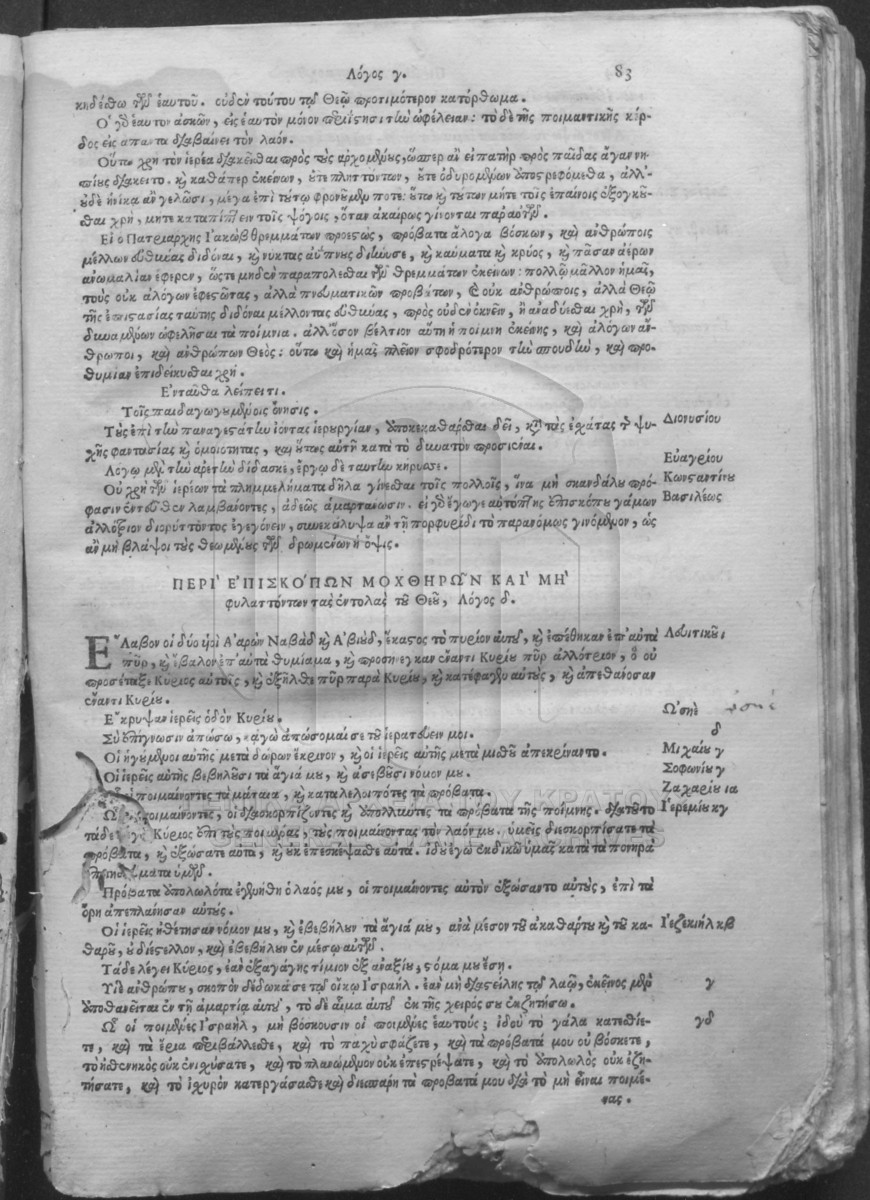 Λόγος γ. 83
κηδέσθω τῶν ἑαυτοῦ. οὐδὲν τούτου τῷ Θεῷ προτιμότερον κατόρθωμα.
Ὁ γὸ ἑαυτὸν ἀσκῶν, εἰς ἑαυτὸν μόνον περιΐστησι τὴν ὠφέλειαν: τὸ δὲ τῆς ποιμαντικῆς κέρ-
δος εἰς ἅπαντα διαβαίνει τὸν λαόν.
Οὕτω χρὴ τὸν ἱερέα διακεῖσθαι πρὸς τοὺς ἀρχομένους, ὥσπερ ἂν εἰ πατὴρ πρὸς παῖδας ἄγαν νη-
πίους διακέοιτο. καὶ καθάπερ ἐκείνων, οὔτε πληττόντων, οὔτε ὀδυρομένων ἐπιστρεφόμεθα, ἀλλ'
οὐδὲ ἡνίκα ἂν γελῶσι, μέγα ἐπὶ τούτῳ φρονοῦμέν ποτε: οὕτω καὶ τούτων μήτε τοῖς ἐπαίνοις ἐξογκοῦ-
σθαι χρή, μήτε καταπίπτειν τοῖς ψόγοις, ὅταν ἀκαίρως γίνονται παρ' αὐτῶν.
Εἰ ὁ Πατριάρχης Ἰακὼβ θρεμμάτων προεστὼς, πρόβατα ἄλογα βόσκων, καὶ ἀνθρώποις
μέλλων εὐθύνας διδόναι, καὶ νύκτας ἀΰπνους διήνυσε, καὶ καύματα καὶ κρύος, καὶ πᾶσαν ἀέρων
ἀνωμαλίαν ἔφερεν, ὥστε μηδὲν παραπολέσθαι τῶν θρεμμάτων ἐκείνων: πολλῷ μᾶλλον ἡμᾶς,
τοὺς οὐκ ἀλόγων ἐφεστῶτας, ἀλλὰ πνευματικῶν προβάτων, καὶ οὐκ ἀνθρώποις, ἀλλὰ Θεῷ
τῆς ἐπιστασίας ταύτης διδόναι μέλλοντας εὐθύνας, πρὸς οὐδὲν ὀκνεῖν, ἢ ἀναδύεσθαι χρή, τῶν
δυναμένων ὠφελῆσαι τὰ ποίμνια. ἀλλ' ὅσον βέλτιον αὕτη ἡ ποίμνη ἐκείνης, καὶ ἀλόγων ἄν-
θρωποι, καὶ ἀνθρώπων Θεὸς: οὕτω καὶ ἡμᾶς πλεῖον σφοδρότερον τὴν σπουδὴν, καὶ προ-
θυμίαν ἐπιδείκνυσθαι χρή.
Ἐνταῦθα λείπει τι.
Τοῖς παιδαγωγουμένοις ὄνησις.
Τοὺς ἐπὶ τὴν παναγεστάτην ἰόντας ἱερουργίαν, ἀποκεκαθάρθαι δεῖ, καὶ τὰς ἐσχάτας τῆς ψυ-
χῆς φαντασίας καὶ ὁμοιότητας, καὶ οὕτως αὐτῇ κατὰ τὸ δυνατὸν προσιέναι.
Διονυσίου
Λόγῳ μὲν τὴν ἀρετὴν δίδασκε, ἔργῳ δὲ ταύτην κήρυσσε.
Εὐαγρίου
Οὐ χρὴ τῶν ἱερέων τὰ πλημμελήματα δῆλα γίνεσθαι τοῖς πολλοῖς, ἵνα μὴ σκανδάλου πρό-
φασιν ἐντεῦθεν λαμβάνοντες, ἀδεῶς ἁμαρτάνωσιν. εἰ γὸ ἔγωγε αὐτόπτης ἐπισκόπου γάμον
ἀλλότριον διορύττοντος ἐγεγόνειν, συνεκάλυψα ἂν τῇ πορφυρίδι τὸ παρανόμως γινόμενον, ὡς
ἂν μὴ βλάψοι τοὺς θεωμένους τῶν δρωμένων ἡ ὄψις.
Κωνσταντίνου
Βασιλέως
ΠΕΡΙ ΕΠΙΣΚΟΠΩΝ ΜΟΧΘΗΡΩΝ ΚΑΙ ΜΗ
φυλαττόντων τὰς ἐντολὰς τοῦ Θεοῦ, Λόγος δ.
Ἔλαβον οἱ δύο υἱοὶ Ἀαρὼν Ναβὰδ καὶ Ἀβιοὺδ, ἕκαστος τὸ πυρίον αὐτοῦ, καὶ ἐπέθηκαν ἐπ' αὐτὰ
πῦρ, καὶ ἔβαλον ἐπ' αὐτὰ θυμίαμα, καὶ προσήνεγκαν ἔναντι Κυρίου πῦρ ἀλλότριον, ὃ οὐ
προσέταξε Κύριος αὐτοῖς, καὶ ἐξῆλθε πῦρ παρὰ Κυρίου, καὶ κατέφαγεν αὐτοὺς, καὶ ἀπεθάνοσαν
ἔναντι Κυρίου.
Λευιτικοῦ ι
Ἔκρυψαν ἱερεῖς ὁδὸν Κυρίου.
Ὠσηὲ
Σὺ ἐπίγνωσιν ἀπώσω, κἀγὼ ἀπώσομαί σε τοῦ ἱερατεύειν μοι.
δ
Οἱ ἡγούμενοι αὐτῆς μετὰ δώρων ἔκρινον, καὶ οἱ ἱερεῖς αὐτῆς μετὰ μισθοῦ ἀπεκρίναντο.
Μιχαίου γ
Οἱ ἱερεῖς αὐτῆς βεβηλοῦσι τὰ ἅγιά μου, καὶ ἀσεβοῦσι νόμον μου.
Σοφωνίου γ
οἱ ποιμαίνοντες τὰ μάταια, καὶ καταλελοιπότες τὰ πρόβατα.
Ζαχαρίου ια
Ὦ οἱ ποιμαίνοντες, οἱ διασκορπίζοντες καὶ ἀπολλύντες τὰ πρόβατα τῆς ποίμνης. διὰ τοῦτο
τάδε Κύριος ἐπὶ τοὺς ποιμένας, τοὺς ποιμαίνοντας τὸν λαόν μου. ὑμεῖς διεσκορπίσατε τὰ
πρόβατα, καὶ ἐξώσατε αὐτὰ, καὶ οὐκ ἐπεσκέψασθε αὐτά. ἰδοὺ ἐγὼ ἐκδικῶ ὑμᾶς κατὰ τὰ πονηρὰ
ἐπιτηδεύματα ὑμῶν.
Ἱερεμίου κγ
Πρόβατα ἀπολωλότα ἐγενήθη ὁ λαός μου, οἱ ποιμαίνοντες αὐτὸν ἐξώσαντο αὐτοὺς, ἐπὶ τὰ
ὄρη ἀπεπλάνησαν αὐτούς.
Οἱ ἱερεῖς ἠθέτησαν νόμον μου, καὶ ἐβεβήλουν τὰ ἅγιά μου, ἀνὰ μέσον τοῦ ἀκαθάρτου καὶ τοῦ κα-
θαροῦ, οὐ διέστελλον, καὶ ἐβεβήλουν ἐν μέσῳ αὐτῶν.
Ἰεζεκιὴλ κβ
Τάδε λέγει Κύριος, ἐὰν ἐξαγάγῃς τίμιον ἐξ ἀναξίου, στόμα μου ἔσῃ.
Υἱὲ ἀνθρώπου, σκοπὸν δέδωκά σε τῷ οἴκῳ Ἰσραήλ. ἐὰν μὴ διαστείλῃς τῷ λαῷ, ἐκεῖνος μὲν
ἀποθανεῖται ἐν τῇ ἁμαρτίᾳ αὐτοῦ, τὸ δὲ αἷμα αὐτοῦ ἐκ τῆς χειρός σου ἐκζητήσω.
γ
Ὦ οἱ ποιμένες Ἰσραὴλ, μὴ βόσκουσιν οἱ ποιμένες ἑαυτούς; ἰδοὺ τὸ γάλα κατεσθίε-
τε, καὶ τὰ ἔρια περιβάλλεσθε, καὶ τὸ παχὺ σφάζετε, καὶ τὰ πρόβατά μου οὐ βόσκετε,
τὸ ἠσθενηκὸς οὐκ ἐνισχύσατε, καὶ τὸ πλανώμενον οὐκ ἐπεστρέψατε, καὶ τὸ ἀπολωλὸς οὐκ ἐζη-
τήσατε, καὶ τὸ ἰσχυρὸν κατεργάσασθε καὶ διεσπάρη τὰ πρόβατά μου διὰ τὸ μὴ εἶναι ποιμέ-
νας.
λδ